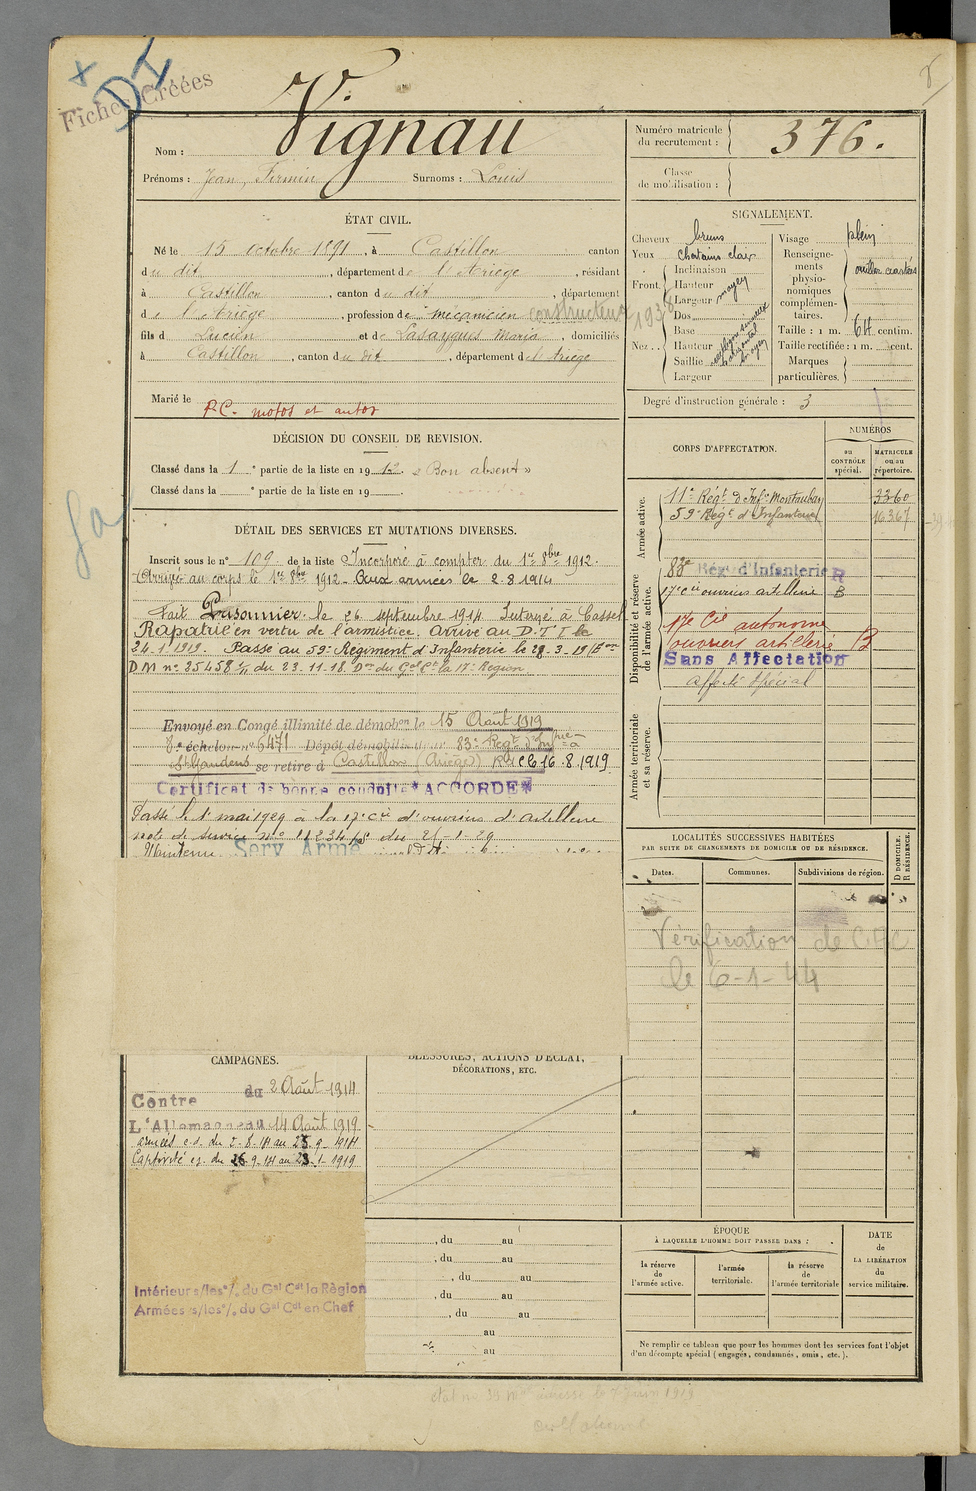 Fiches Créées
DI
Vignau
Nom :
Prénoms : Jean, Firmin Surnoms : Louis
Numéro matricule du recrutement : 376.
Classe de mobilisation :
ÉTAT CIVIL.
Né le 15 octobre 1891, à Castillon canton
du dit, département de l'Ariège, résidant
à Castillon, canton du dit, département
de l'Ariège, profession de mécanicien constructeur 1938
fils de Lucien et de Lasaygues Maria, domiciliés
à Castillon, canton du dit, département de l'Ariège
Marié le
P.C. motos et autos
SIGNALEMENT.
Cheveux bruns
Yeux chatains clair
Front. Inclinaison
Hauteur
Largeur moyen
Nez. Dos
Base
Hauteur
Saillie
Largeur
Visage plein
Renseignements physionomiques complémentaires.
Taille : 1 m. 64 centim.
Taille rectifiée : 1 m. cent.
Marques particulières.
Degré d'instruction générale : 3
DÉCISION DU CONSEIL DE REVISION.
Classé dans la 1e partie de la liste en 1912. « Bon absent »
Classé dans la e partie de la liste en 19 .
DÉTAIL DES SERVICES ET MUTATIONS DIVERSES.
Inscrit sous le n° 109 de la liste Incorporé à compter du 1er 8bre 1912.
Arrivé au corps le 1er 8bre 1912 - Aux armées le 2.8.1914
Fait Prisonnier le 26 septembre 1914 Interné à Cassel
Rapatrié en vertu de l'armistice. Arrivé au D.T.I. le
24.1.1919. Passé au 59e Régiment d'Infanterie le 28-3-19
D M n° 25458 du 23.11.18. Don du Gal Ct la 17e Région
Envoyé en Congé illimité de démobon le 15 Août 1919
8e échelon n° 6471 Dépôt démobilisateur 83e Regt d'Infrie à
St Gaudens se retire à Castillon (Ariège) le 16.8.1919
Certificat de bonne conduite "ACCORDÉ"
Passé le 1er mai 1929 à la 17e Cie d'ouvriers d'artillerie
note de service n° 11234
Maintenu Serv Armé
CORPS D'AFFECTATION.
NUMÉROS
au CONTRÔLE spécial.
MATRICULE ou au répertoire.
Armée active.
11e Régt. d'Infie Montauban 3360
59e Regt d'Infanterie 16367
Disponibilité et réserve de l'armée active.
83e Régt d'Infanterie R
17e Cie ouvriers artillerie B
17e Cie autonome
ouvriers artillerie B
Sans Affectation
affecté spécial
Armée territoriale et sa réserve.
LOCALITÉS SUCCESSIVES HABITÉES
PAR SUITE DE CHANGEMENTS DE DOMICILE OU DE RÉSIDENCE.
Dates. Communes. Subdivisions de région.
D DOMICILE.
R RÉSIDENCE.
Vérification de
le 6-1-44
CAMPAGNES.
Contre du 2 Août 1914
L'Allemagne au 14 Août 1919
Captivité
BLESSURES, ACTIONS D'ÉCLAT,
DÉCORATIONS, ETC.
Intérieur s/les o/. du Gal Cdt la Région
Armées s/les o/. du Gal Cdt en Chef
, du au
, du au
, du au
, du au
, du au
au
au
ÉPOQUE
À LAQUELLE L'HOMME DOIT PASSER DANS :
la réserve de l'armée active.
l'armée territoriale.
la réserve de l'armée territoriale
DATE de LA LIBÉRATION du service militaire.
Ne remplir ce tableau que pour les hommes dont les services font l'objet
d'un décompte spécial (engagés, condamnés, omis, etc.).